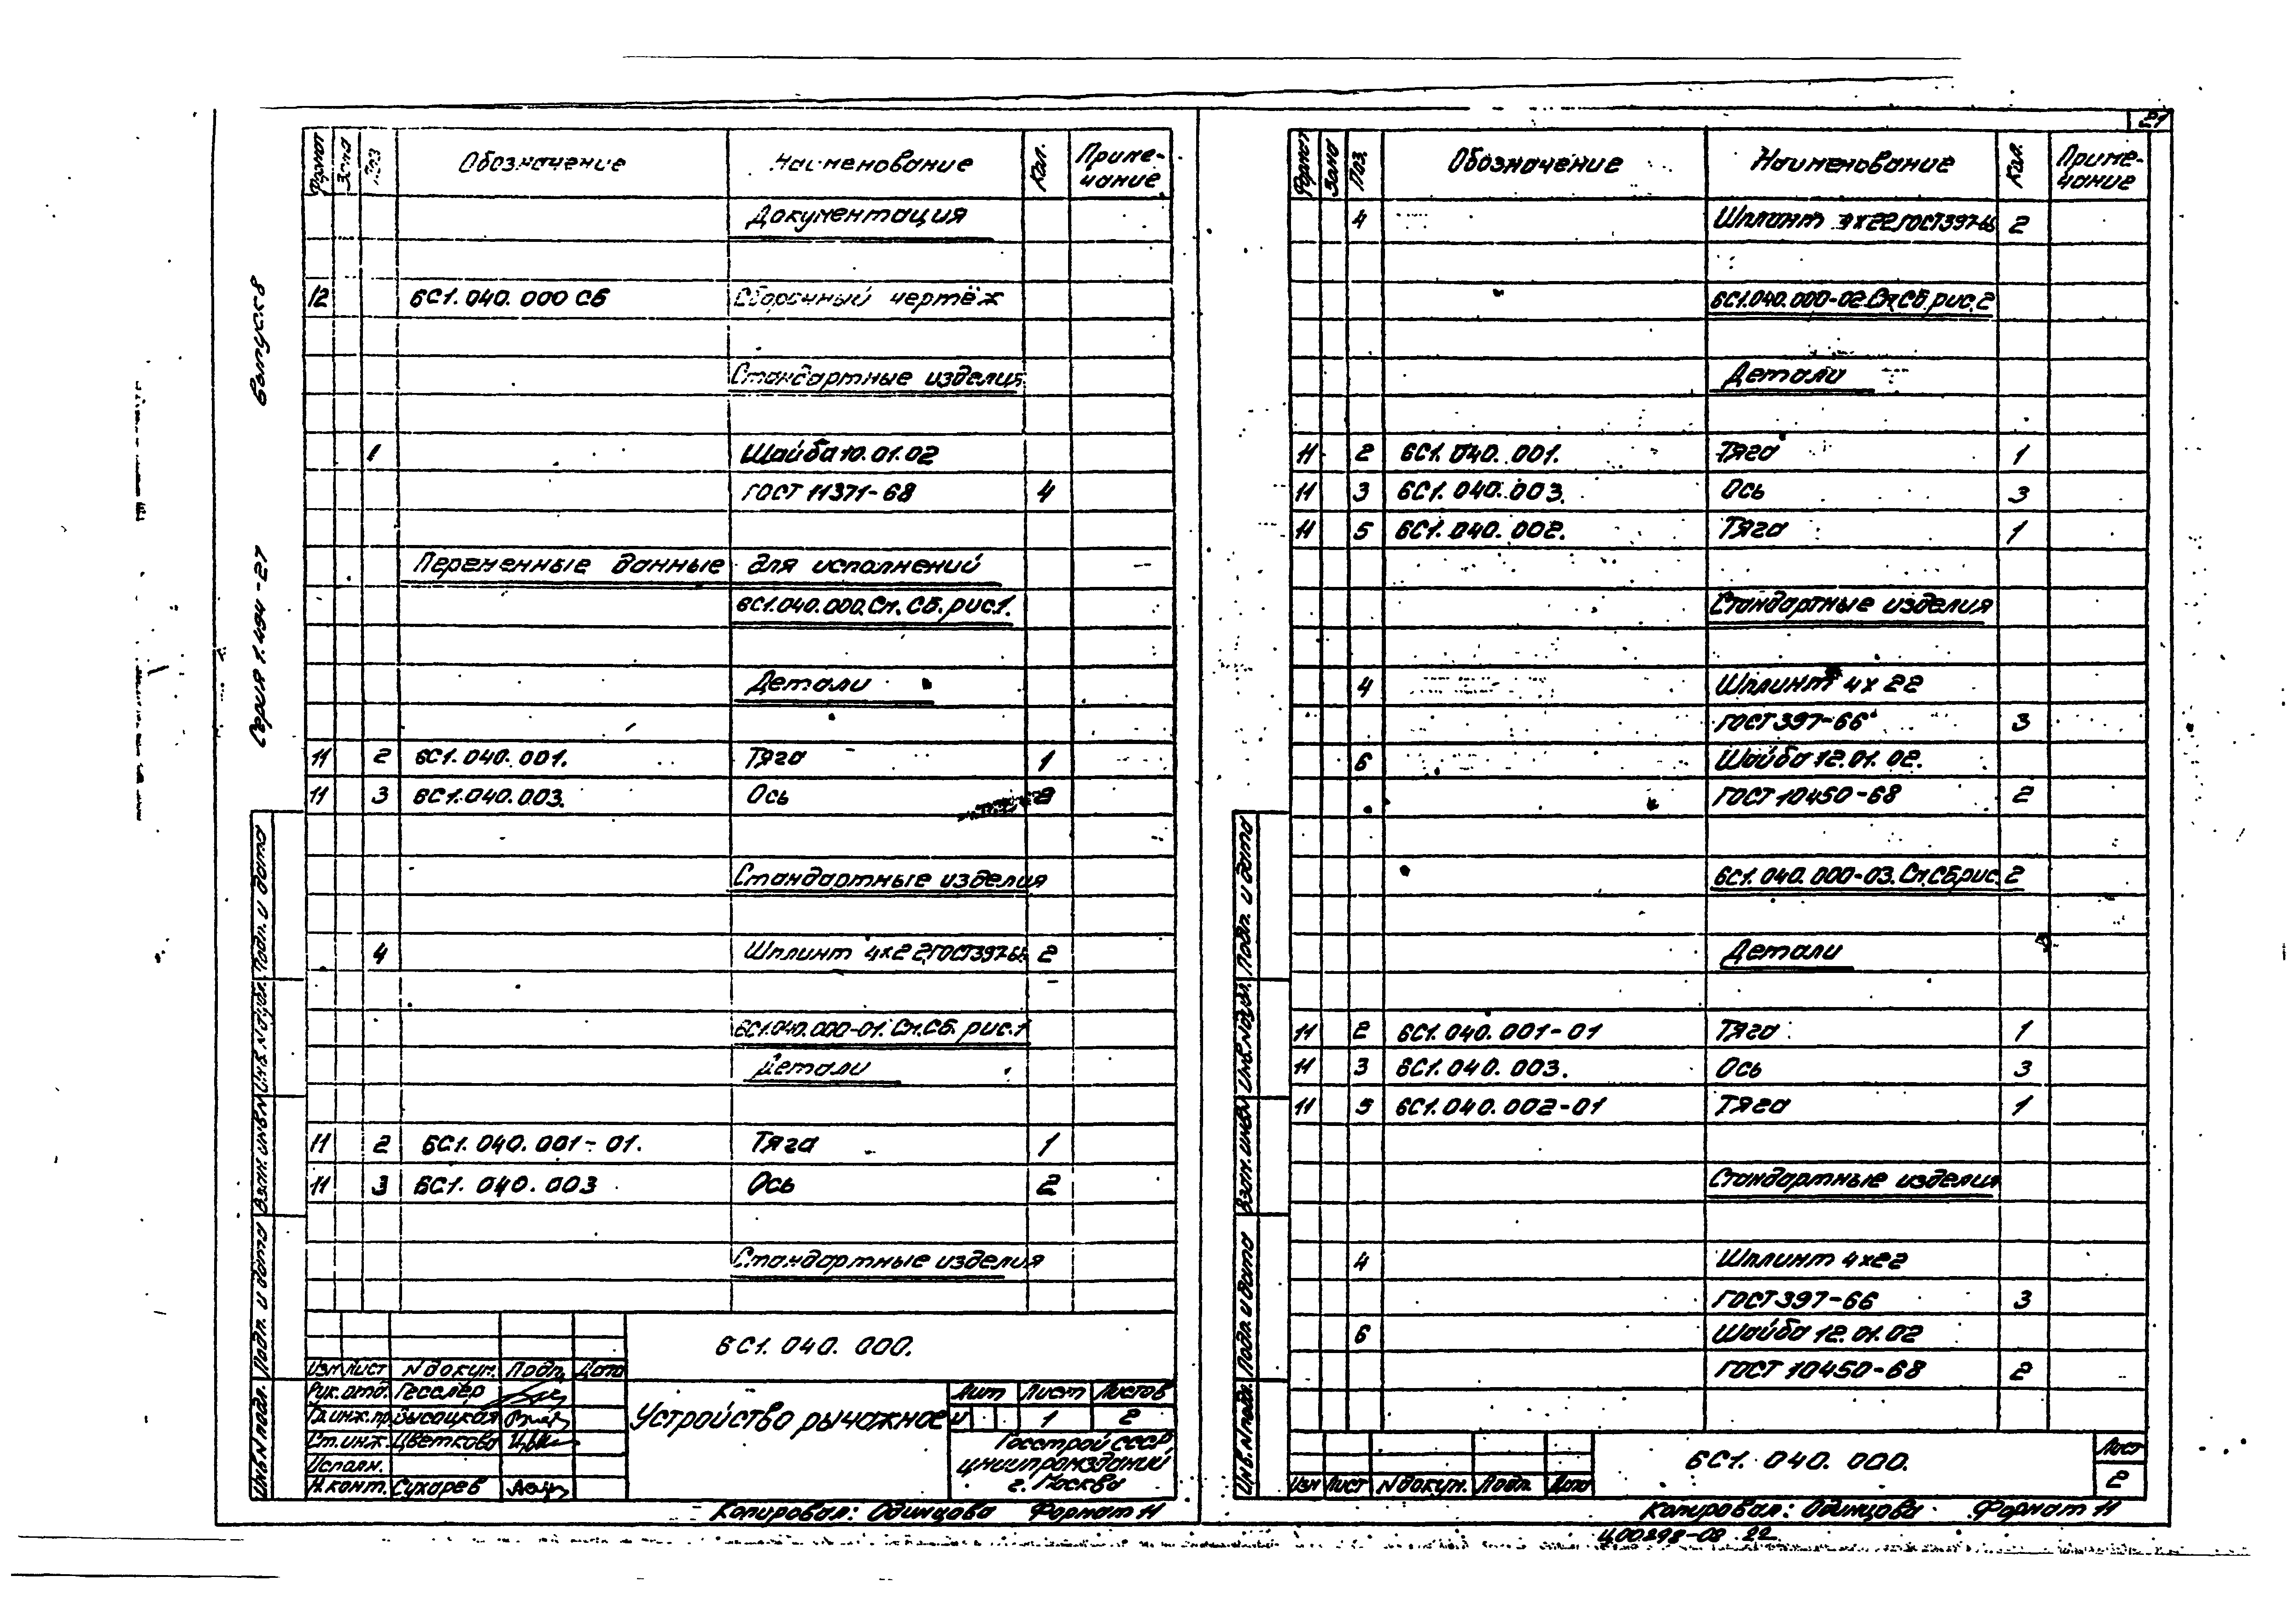 21
Серия 1.494-27 Выпуск 8
Формат Зона Поз. Обозначение Наименование Кол. Приме-чание
Документация
12 6С1.040.000 СБ Сборочный чертёж
Стандартные изделия
1 Шайба 10.01.02
ГОСТ 11371-68 4
Переменные данные для исполнений
6С1.040.000.См.СБ.рис.1.
Детали
11 2 6С1.040.001. Тяга 1
11 3 6С1.040.003. Ось 2
Стандартные изделия
4 Шплинт 4х22 ГОСТ397-66 2
6С1.040.000-01.См.СБ.рис.1
Детали
11 2 6С1.040.001-01. Тяга 1
11 3 6С1.040.003 Ось 2
Стандартные изделия
6С1.040.000.
Изм Лист N докум. Подп. Дата
Рук. отд. Гесслер
Гл.инж.пр. Высоцкая
Ст.инж. Цветкова
Исполн.
Н.конт. Сухарев
Устройство рычажное
Лит Лист Листов
И 1 2
Госстрой СССР
ЦНИИпромзданий
г. Москва
Копировал: Одинцова Формат 11
Инв.N подл. Подп. и дата Взам.инв.N Инв.N дубл. Подп. и дата
Формат Зона Поз. Обозначение Наименование Кол. Приме-чание
4 Шплинт 4х22 ГОСТ397-66 2
6С1.040.000-02.См.СБ.рис.2
Детали
11 2 6С1.040.001. Тяга 1
11 3 6С1.040.003. Ось 3
11 5 6С1.040.002. Тяга 1
Стандартные изделия
4 Шплинт 4х22
ГОСТ397-66 3
6 Шайба 12.01.02.
ГОСТ 10450-68 2
6С1.040.000-03.См.СБ.рис.2
Детали
11 2 6С1.040.001-01 Тяга 1
11 3 6С1.040.003. Ось 3
11 5 6С1.040.002-01 Тяга 1
Стандартные изделия
4 Шплинт 4х22
ГОСТ397-66 3
6 Шайба 12.01.02
ГОСТ 10450-68 2
6С1.040.000.
Лист
2
Изм Лист N докум. Подп. Дата
Инв.N подл. Подп. и дата Взам.инв.N Инв.N дубл. Подп. и дата
Копировал: Одинцова Формат 11
Ц00298-08 22